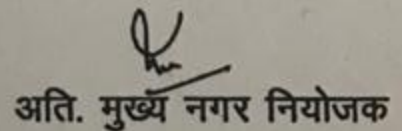 अति. मुख्य नगर नियोजक